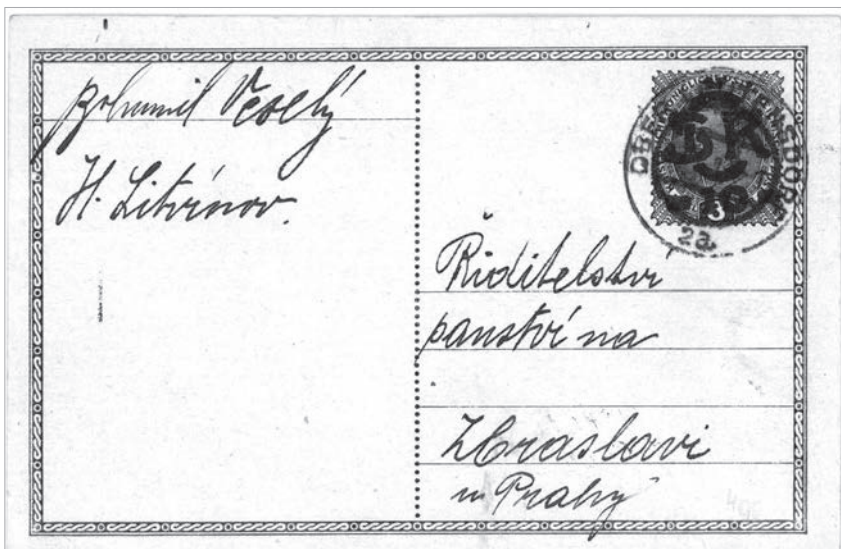 Bohumil Veselý
H. Litvínov.
3
Řiditelství
panství na
Zbraslavi
u Prahy